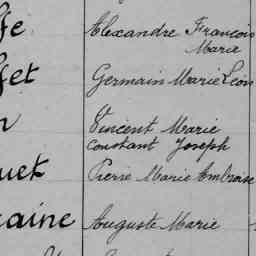 ffe Alexandre François
Marie
ffet Germain Marie Léon
n Vincent Marie
Constant Joseph
uet Pierre Marie Ambroise
caine Auguste Marie